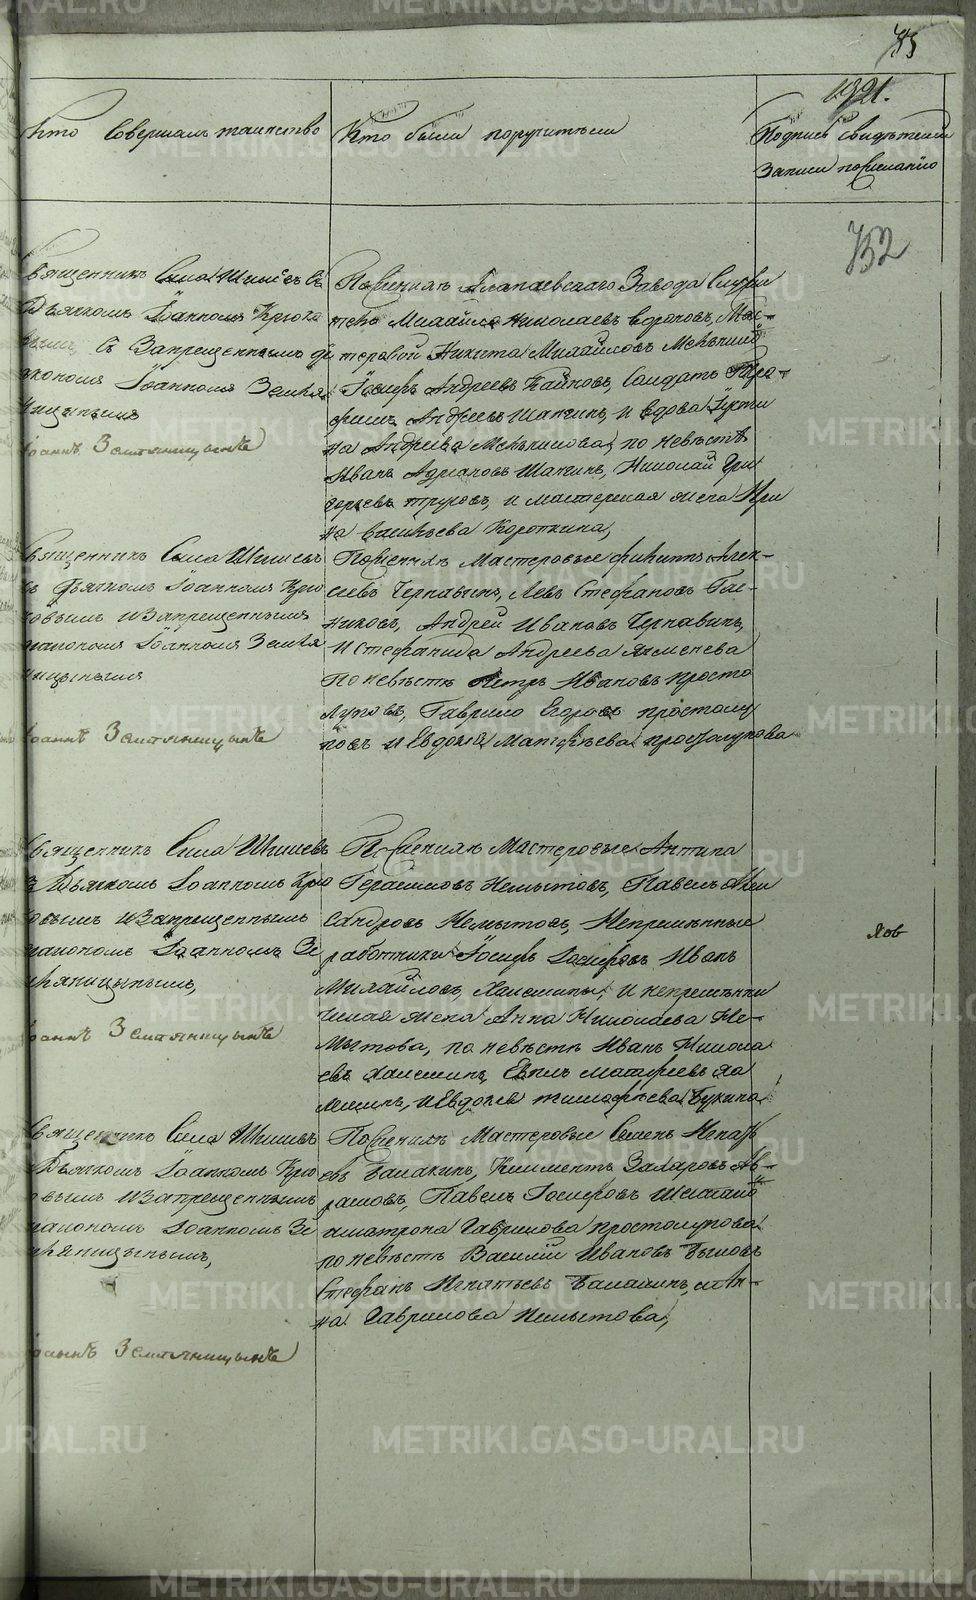 1321.
Кто совершалъ таинство
Кто были поручители
Подпись свидѣтелей
записи по желанію
752
Священникъ Сила Шишевъ съ
Дьячкомъ Іоанномъ Крюко
вымъ, съ запрещеннымъ ді
акономъ Іоанномъ Земля
ницынымъ
Іоаннъ Земляницынъ
По женихѣ Алапаевскаго Завода Служи
тель Михайло Николаевъ Мас-
теровой Никита Михайловъ
Іосифъ Андреевъ Солдатъ Тро-
фимъ Андреевъ Шапкинъ, и вдова
на Андреева по невѣстѣ
Иванъ Шапкинъ, Николай Гри
горьевъ Трусовъ, и мастерская жена Ири
на Васильева Короткина,
Священникъ Сила Шишевъ
съ Дьячкомъ Іоанномъ Крю
ковымъ и запрещеннымъ
діакономъ Іоанномъ Земля
ницынымъ
Іоаннъ Земляницынъ
По женихѣ Мастеровые Алек-
сѣевъ Чернавинъ, Левъ Стефановъ
Андрей Ивановъ Чернавинъ,
и Стефанида Андреева
По невѣстѣ Петръ Ивановъ Просто
луповъ, Гаврило Егоровъ Простолу
повъ и Евдокія Матфѣева Простолупова
Священникъ Сила Шишевъ
съ Дьячкомъ Іоанномъ Крю
ковымъ и запрещеннымъ
діакономъ Іоанномъ Зе
мляницынымъ,
Іоаннъ Земляницынъ
По женихѣ Мастеровые Антипа
Герасимовъ Немытовъ, Павелъ Алек
сандровъ Немытовъ, Непремѣнные
работники Іосифъ Іосифовъ Иванъ
Михайловъ, Халемины, и непремѣнни
ческая жена Анна Николаева Не-
мытова, по невѣстѣ Иванъ Никола
евъ Халеминъ, Матфеевъ Ха
леминъ, и Евдокея Тимофѣева Букина
Священникъ Сила Шишевъ
Дьячкомъ Іоанномъ Крю
ковымъ и запрещеннымъ
діакономъ Іоанномъ Зе
мляницынымъ,
Іоаннъ Земляницынъ
По женихѣ Мастеровые Семенъ Игнать
евъ Балакинъ, Климентъ Захаровъ Аб-
рамовъ, Павелъ Іосифовъ
Гаврилова Простолупова
по невѣстѣ Василій Ивановъ Бычковъ
Стефанъ Игнатьевъ Балакинъ, и Ан-
на Гаврилова Немытова,
METRIKI.GASO-URAL.RU